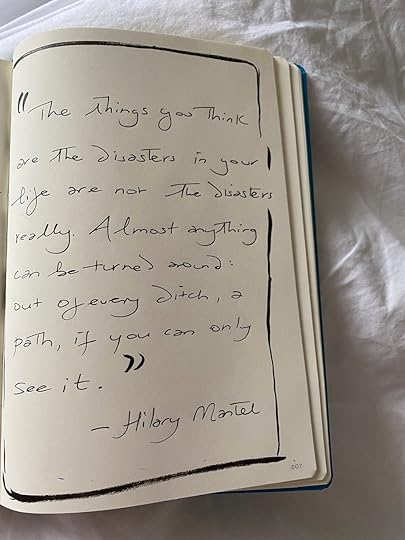 "The things you Think
are The Disasters in your
life are not The Disasters
really. Almost anything
can be turned around:
out of every Ditch, a
path, if you can only
see it."
- Hilary Mantel
207